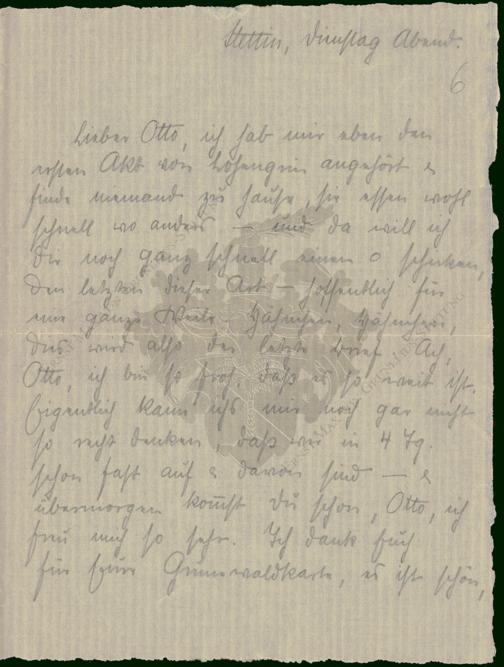 Stettin, Dienstag Abend.
6
Lieber Otto, ich hab mir eben den
ersten Akt von Lohengrin angehört &
finde niemand zu Hause, sie essen wohl
schnell wo anders – und da will ich
Dir noch ganz schnell einen o schicken,
den letzten dieser Art – hoffentlich für
eine ganze Weile –
Dies wird also der letzte Brief. Ach,
Otto, ich bin so froh, daß es so weit ist.
Eigentlich kann ichs mir noch gar nicht
so recht denken, daß wir in 4 Tg.
schon fast auf & davon sind – &
übermorgen kommst Du schon, Otto, ich
freu mich so sehr. Ich dank Euch
für Eure Grunewaldkarte, es ist schön,